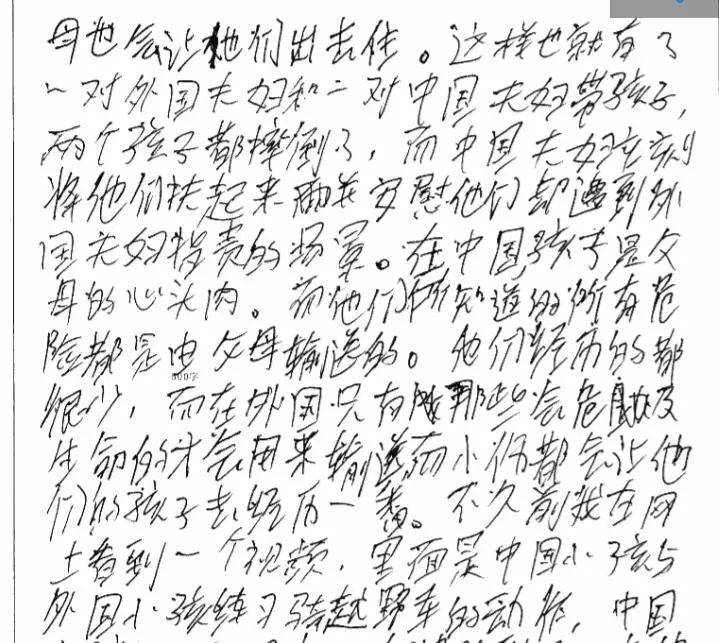 母也会让他们出去住。这样也就有了
一对外国夫妇和一对中国夫妇带孩子,
两个孩子都摔倒了,而中国夫妇立刻
将他们扶起来而并安慰他们却遭到外
国夫妇指责的场景。在中国孩子是父
母的心头肉。而他们所知道的所有危
险都是由父母输送的。他们经历的都
800字
很少,而在外国只有那些会危及
生命的才会用来输送而小伤都会让他
们的孩子去经历一番。不久前我在网
上看到一个视频,里面是中国小孩与
外国小孩练习骑越野车的动作,中国